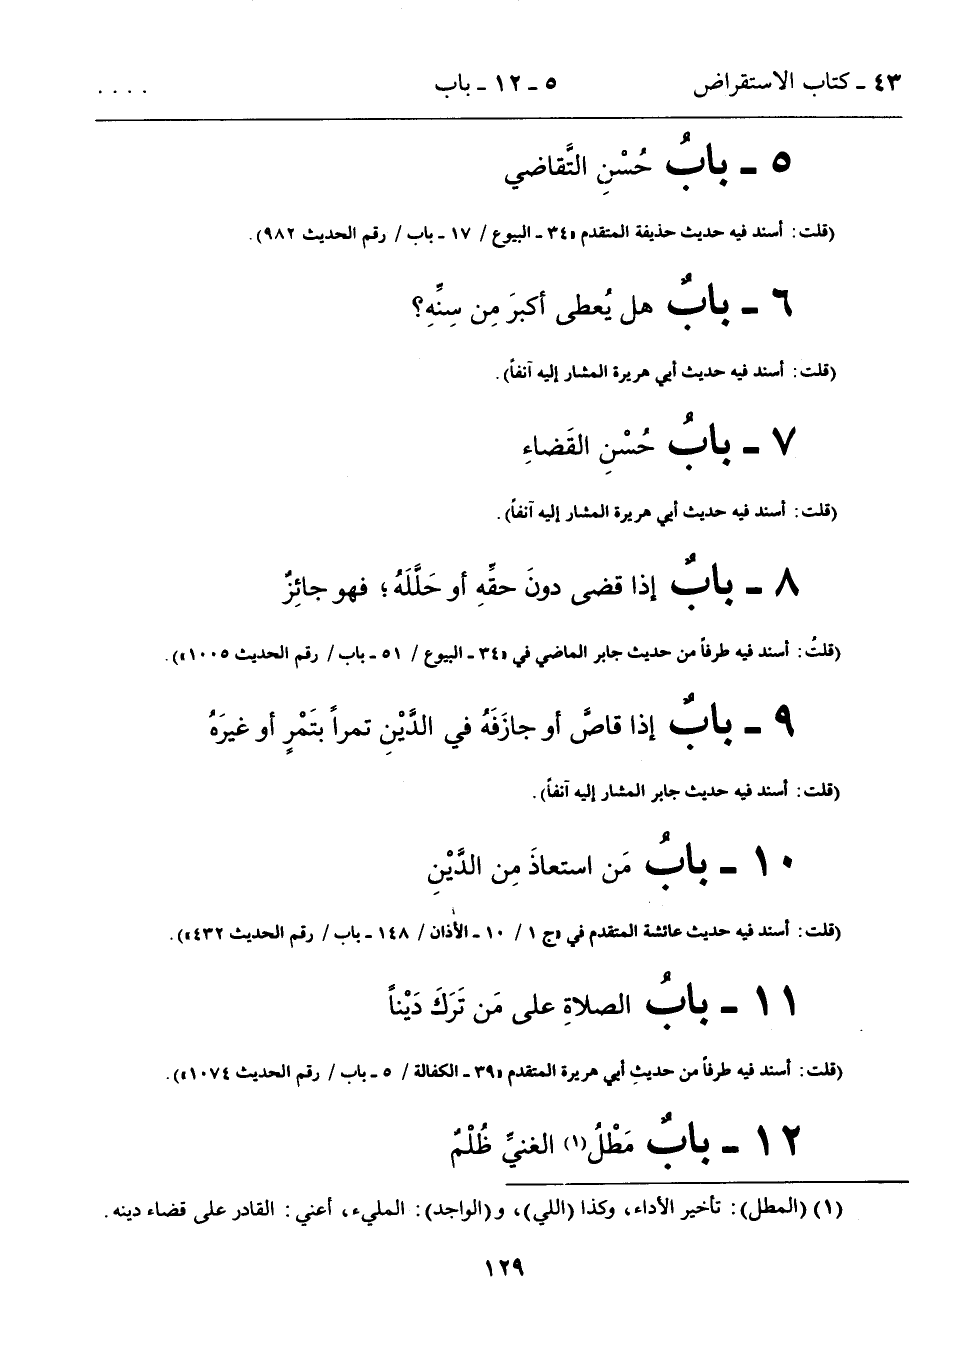 ٤٣ ـ كتاب الاستقراض ٥ ـ ١٢ ـ باب ....
٥ ـ بابُ حُسْنِ التَّقاضي
(قلت: أسند فيه حديث حذيفة المتقدم «٣٤ ـ البيوع / ١٧ ـ باب / رقم الحديث ٩٨٢).
٦ ـ بابٌ هل يُعطى أكبرَ مِن سِنِّهِ؟
(قلت: أسند فيه حديث أبي هريرة المشار إليه آنفاً).
٧ ـ بابُ حُسْنِ القَضاءِ
(قلت: أسند فيه حديث أبي هريرة المشار إليه آنفاً).
٨ ـ بابٌ إذا قضى دونَ حقِّهِ أو حَلَّلَهُ؛ فهو جائِزٌ
(قلتُ: أسند فيه طرفاً من حديث جابر الماضي في «٣٤ ـ البيوع / ٥١ ـ باب / رقم الحديث ١٠٠٥»).
٩ ـ بابٌ إذا قاصَّ أو جازَفَهُ في الدَّيْنِ تمراً بتَمْرٍ أو غيرَهُ
(قلت: أسند فيه حديث جابر المشار إليه آنفاً).
١٠ ـ بابُ مَن استعاذَ مِن الدَّيْنِ
(قلت: أسند فيه حديث عائشة المتقدم في «ج ١ / ١٠ ـ الأذان / ١٤٨ ـ باب / رقم الحديث ٤٣٢»).
١١ ـ بابُ الصلاةِ على مَن تَرَكَ دَيْناً
(قلت: أسند فيه طرفاً من حديثِ أبي هريرة المتقدم «٣٩ ـ الكفالة / ٥ ـ باب / رقم الحديث ١٠٧٤»).
١٢ ـ بابٌ مَطْلُ(١) الغنيِّ ظُلْمٌ
(١) (المطل): تأخير الأداء، وكذا (اللي)، و(الواجد): المليء، أعني: القادر على قضاء دينه.
١٢٩